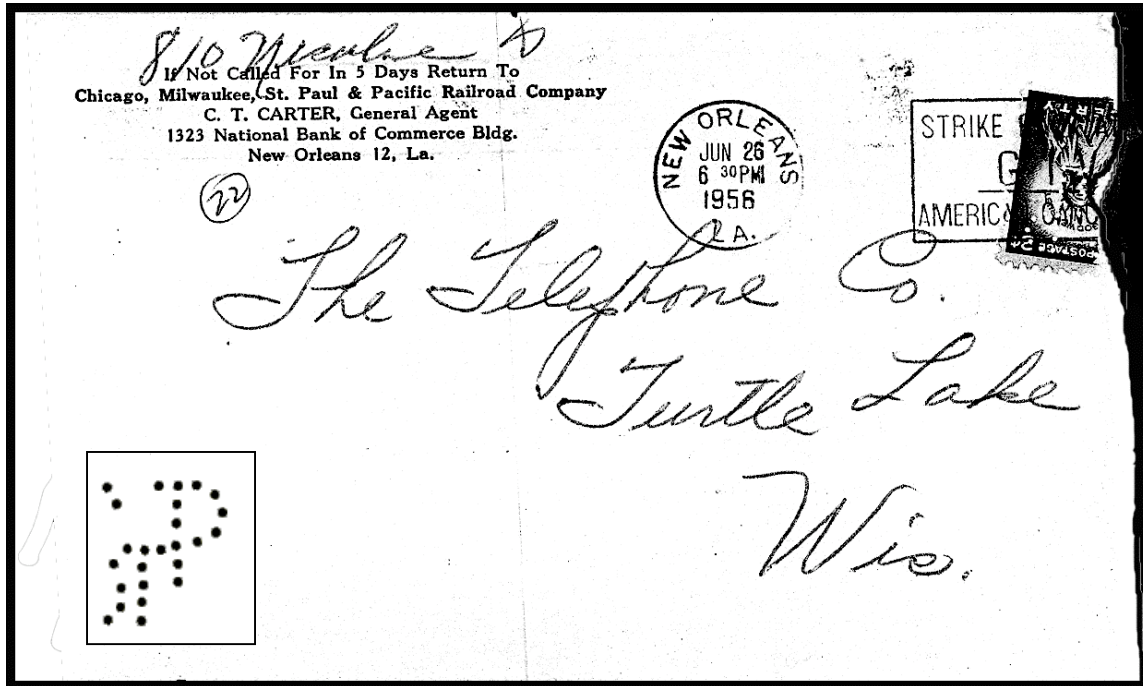 810 Nicolae St
If Not Called For In 5 Days Return To
Chicago, Milwaukee, St. Paul & Pacific Railroad Company
C. T. CARTER, General Agent
1323 National Bank of Commerce Bldg.
New Orleans 12, La.
22
NEW ORLEANS
JUN 26
6 30PM
1956
LA.
STRIKE
AMERICA
POSTAGE 2¢
The Telephone Co.
Turtle Lake
Wis.